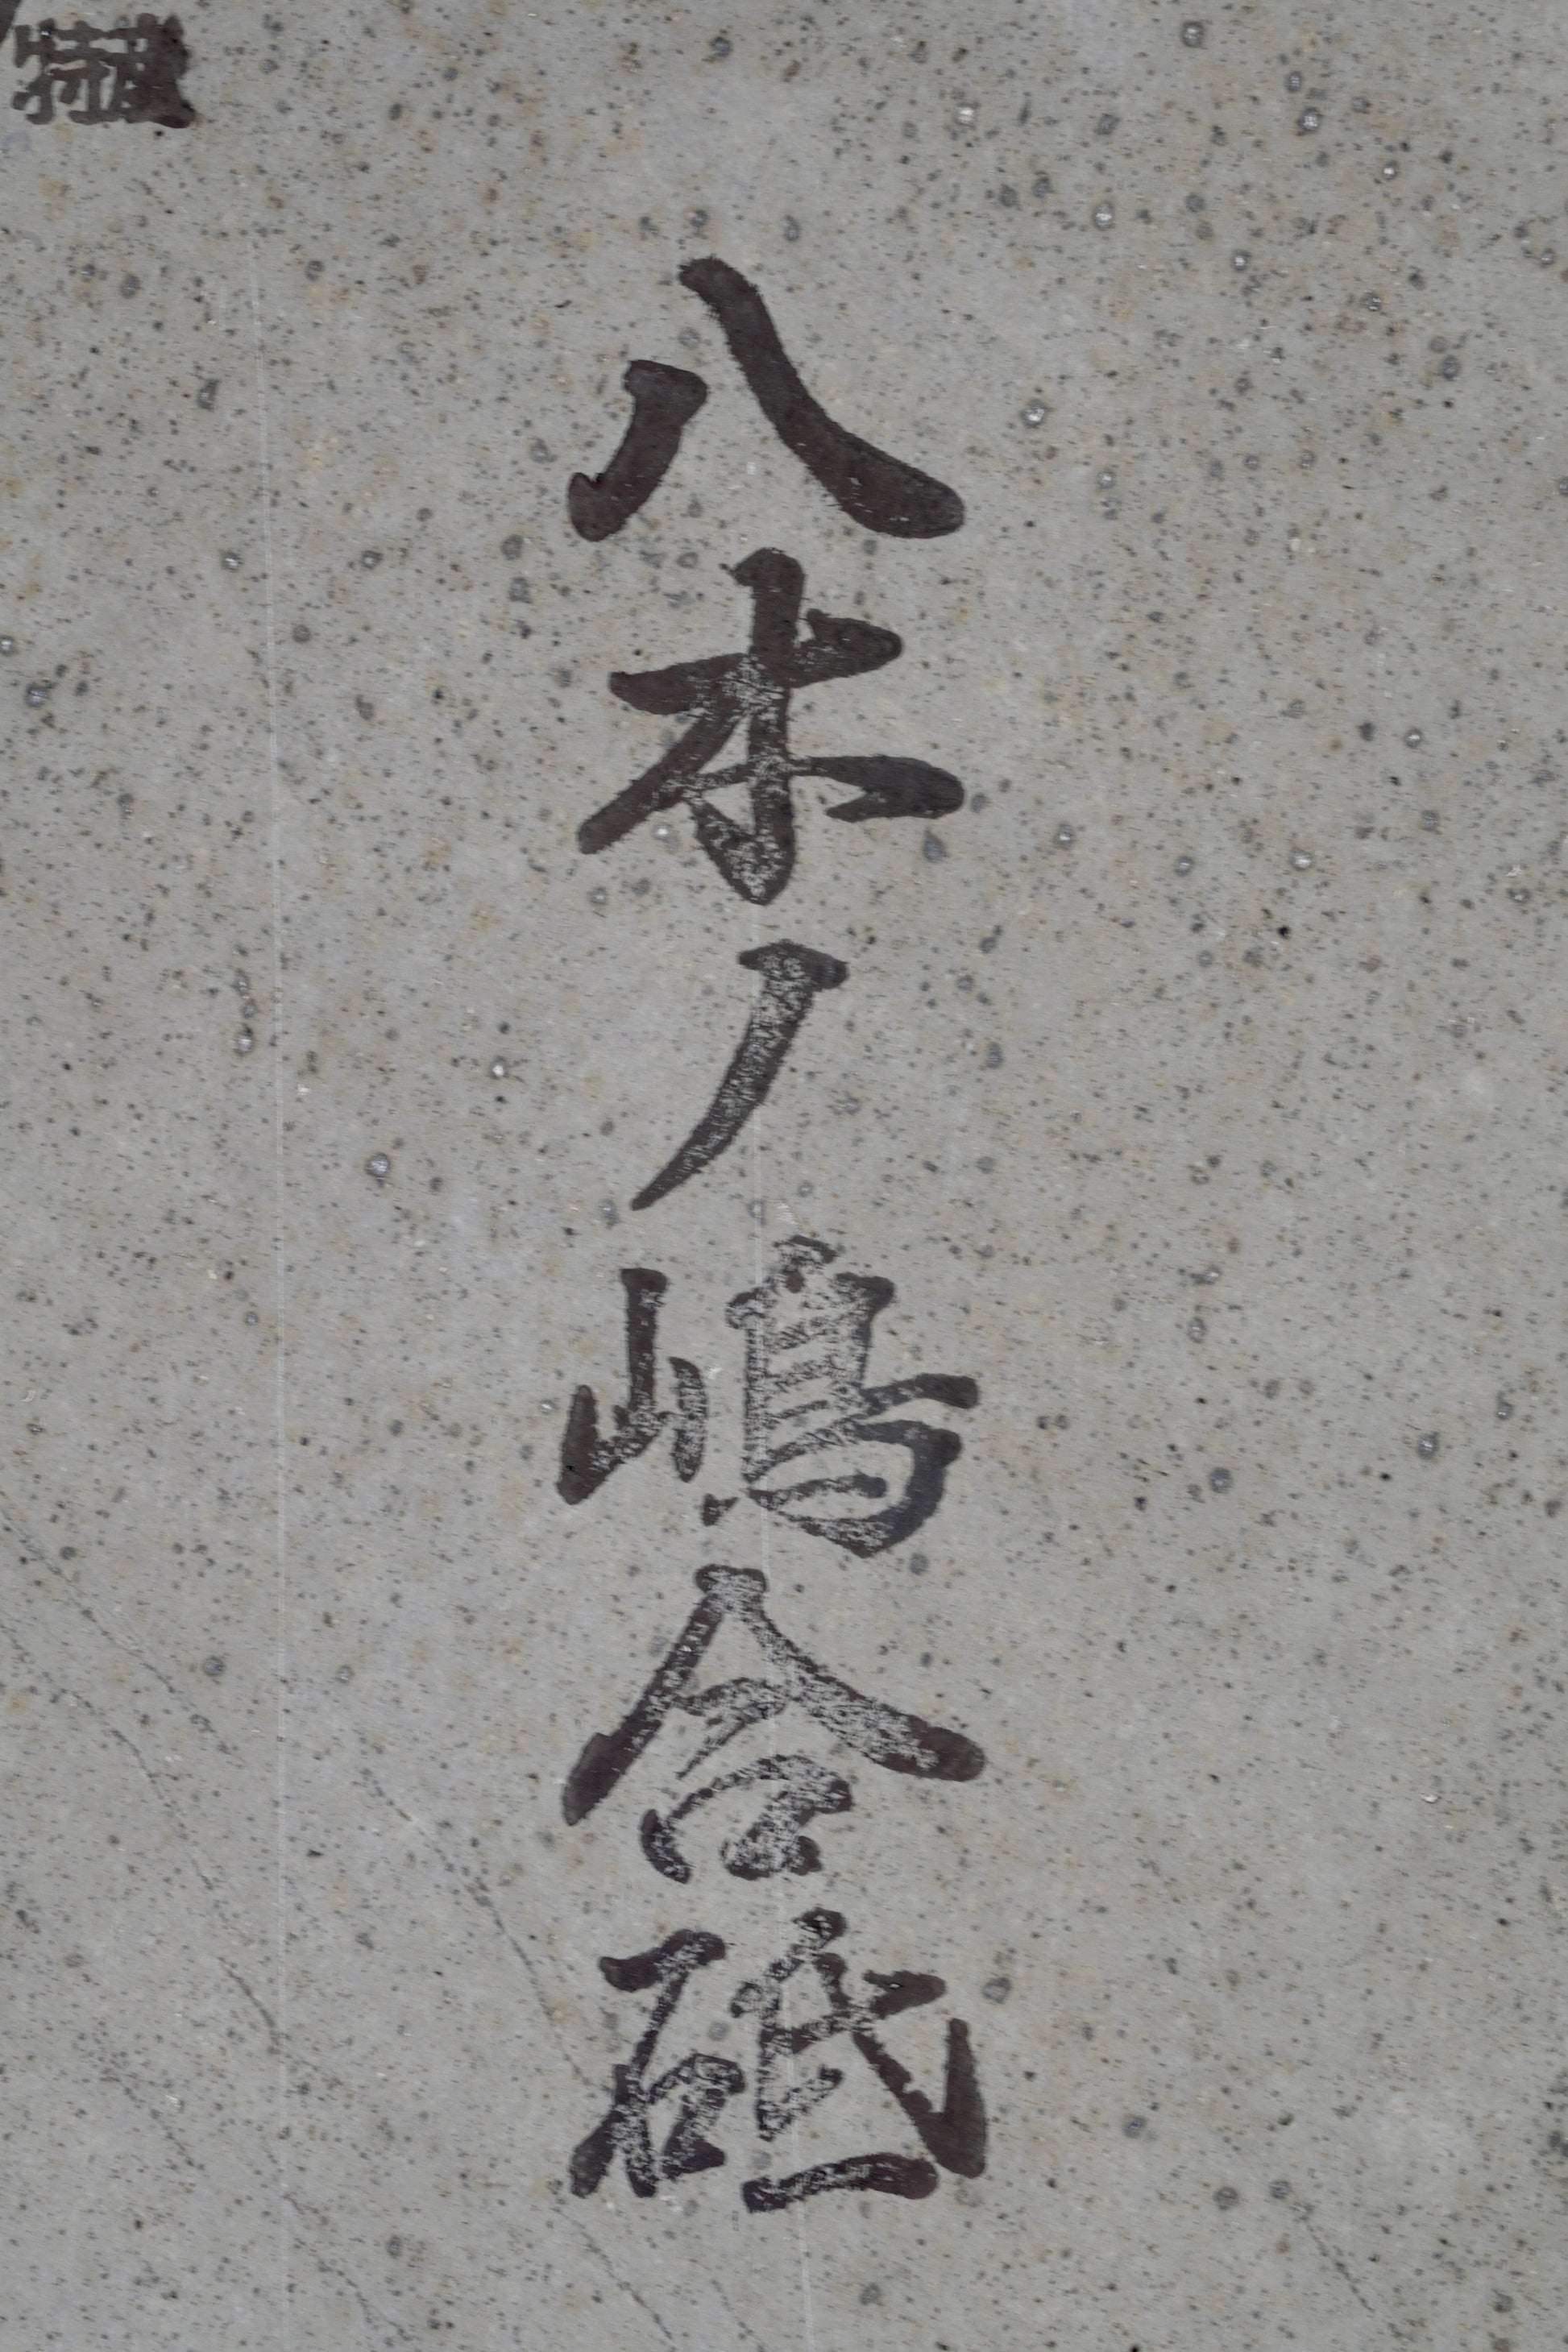 八木ノ嶋合砥